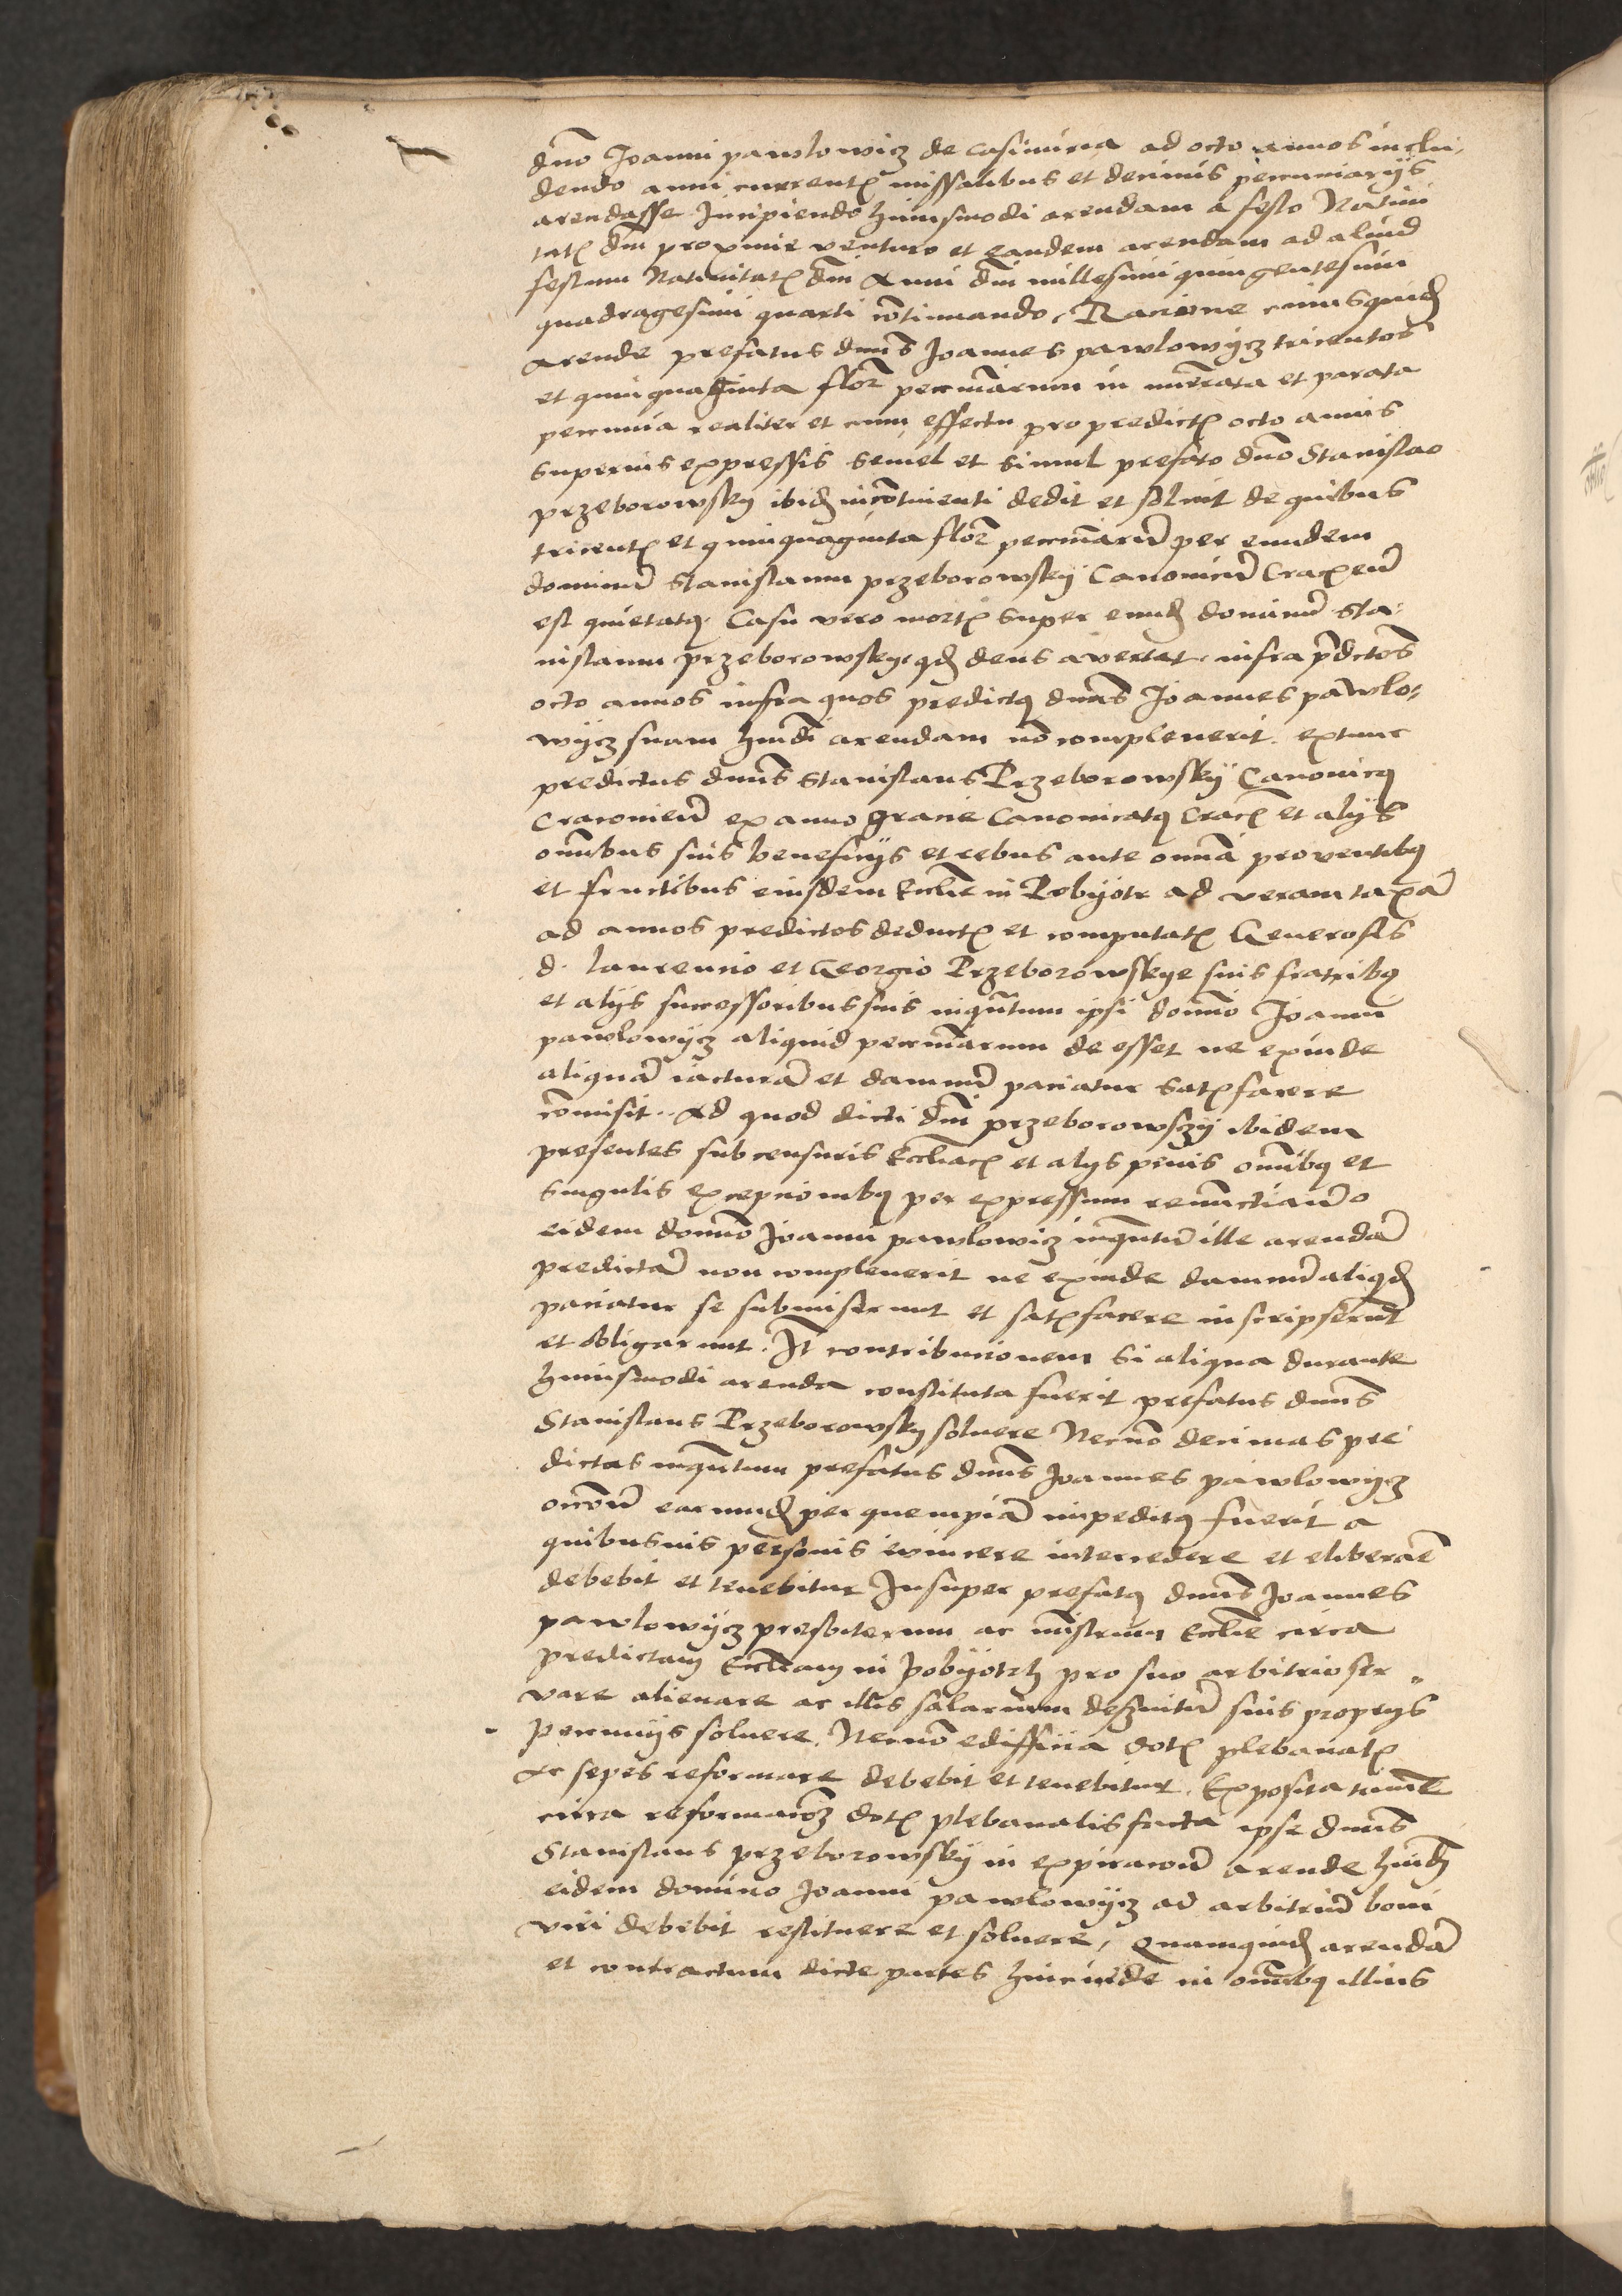 dno Joanni pawlowicz de Casimiria ad octo annos inclu-
dendo anni current missalibus et decimis pecuniarÿs
arendasse Incipiendo huiusmodi arendam a festo Nativi
tat dni proxime venturo et eandem arendam ad aliud
festum Nativitat dni Anni dni millesimi quingentesimi
quadragesimi quarti cōtinuando. Racione cuiusquid
Arende prefatus dnus Joannes pawlowÿcz tricentos
et quinquaginta flor pecuniarum in numerata et parata
pecunia realiter et cum effectu pro predict octo annis
superius expressis semel et simul prefato dno Stanislao
przeborowsky ibid incōtinenti dedit et soluit de quibus
tricent et quinquaginta flor pecuniarū per eundem
dominū Stanislaum przeborowskÿ Canonicū Cracoeñ
est quietat. Casu vero mort super eund dominū Sta-
nislaum przeborowsky qd deus avertat infra p̄dctos
octo annos infra quos predict dnus Joannes pawlo-
wÿcz suam hmdi arendam nō compleuerit. extunc
predictus dnus Stanislaus Przeborowskÿ Canonic
Cracovieñ ex anno gracie Canonicat Crac et alÿs
omnibus suis beneficÿs et rebus ante omnia proventib
et fructibus eiusdem Ecclie in Pobÿotr ad veram taxā
ad annos predictos deduct et computat Generosis
d. laurencio et Georgio Przeborowskye suis fratrib
et alÿs successoribus suis inquātum ipsi domino Joanni
pawlowÿcz aliquid pecuniarum de esset ne exinde
aliquā iacturā et damnū paciatur satisfacere
cōmisit. Ad quod dicti dni przeborowszÿ ibidem
presentes sub censuris Ecclac et alÿs penis omnib et
singulis excepcionib per expressum renunctiando
eidem domino Joanni pawlowicz inquātū ille arendā
predictā non compleuerit ne exinde damnū aliqd
paciatur se submiserunt et satisfacere inscripserunt
et obligarunt. It contribucionem si aliqua durante
huiusmodi arenda constituta fuerit prefatus dnus
Stanislaus Przeborowsky soluere Necnō decimas pre
dictas inquātum prefatus dnus Joannes pawlowÿcz
earund per quempiā impedit fuerit a
quibusuis personis evincere intercedere et eliberare
debebit et tenebitur Insuper prefat dnus Joannes
pawlowÿcz presbiterum ac mistrum Ecclie circa
predictam Eccliam in Pobÿotrh pro suo arbitrio ser-
vare alienare ac illis salarium definitū suis proprÿs
Pecunÿs soluere. Necnō edifficia dot plebanat
Ac sepes reformare debebit et tenebitur. Exposita tamē
circa reformacōz dot plebanalis facta ipse dnus
Stanislaus przeborowskÿ in expiracione arende huid
eidem domino Joanni pawlowÿcz ad arbitriū boni
viri debebit restituere et soluere, Quamquid arendā
et contractum dicte partes hincinde in omnib illius